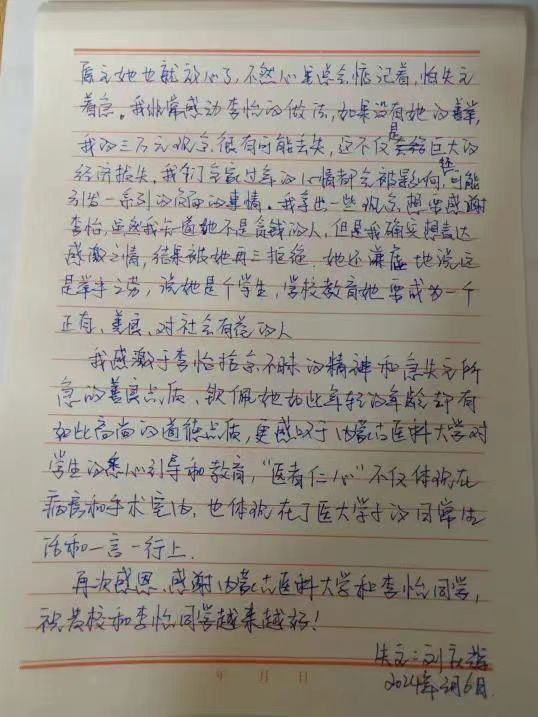 后主她也就放心了,不然心里总会惦记着,怕失主
着急。我非常感动李怡的做法,如果没有她的善举,
我的三万元现金很有可能丢失,这不仅是会给巨大的
经济损失,我们全家过年的心情都会被影响,还可能
引发一系列的负面的事情。我拿出一些现金想要感谢
李怡,虽然我知道她不是贪钱的人,但是我确实想表达
感激之情,结果被她再三拒绝.她还谦虚地说这
是举手之劳,说她是个学生,学校教育她要成为一个
正直、善良、对社会有益的人
我感激于李怡拾金不昧的精神和急失主所
急的善良品质,钦佩她如此年轻的年龄却有
如此高尚的道德品质,更感叹于内蒙古医科大学对
学生的悉心引导和教育,“医者仁心”不仅体现在
病房和手术室内,也体现在了医大学子的日常生
活和一言一行上.
再次感恩、感谢内蒙古医科大学和李怡同学,
祝贵校和李怡同学越来越好!
失主:刘
2024年2月6日.
年 月 日